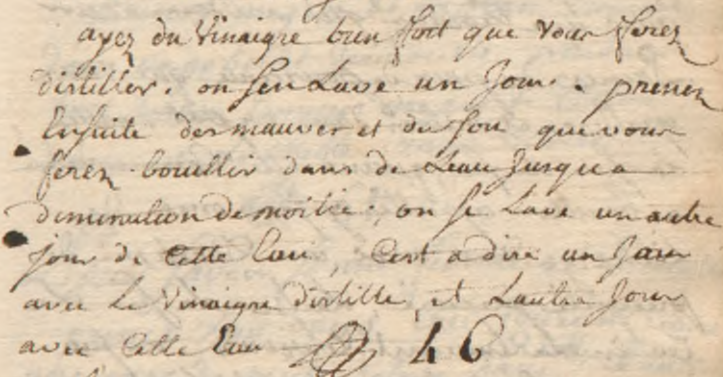 ayez du Vinaigre bien fort que vous ferez
distiller. on s'en Lave un Jour. prenez
Ensuite des mauves et du son que vous
ferez bouillir dans de Leau Jusqu a
diminution de moitié; on se Lave un autre
jour de Cette Eau, Cest a dire un Jour
avec Le Vinaigre distillé, et Lautre Jour
avec Cette Eau 46